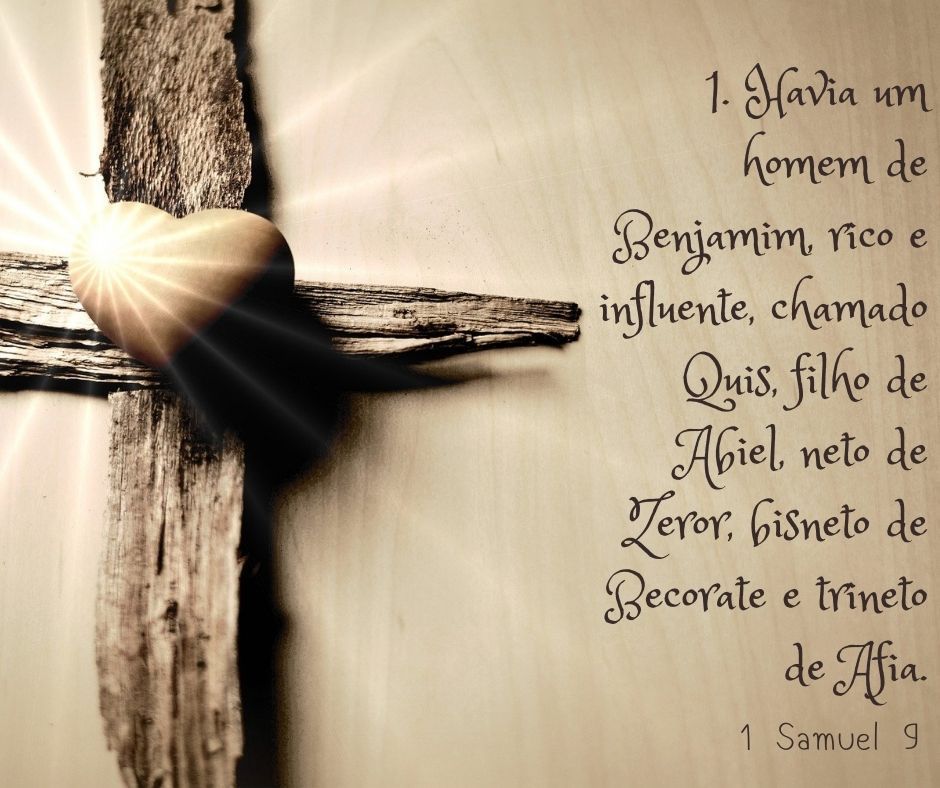 1. Havia um
homem de
Benjamim, rico e
influente, chamado
Quis, filho de
Abiel, neto de
Zeror, bisneto de
Becorate e trineto
de Afia.
1 Samuel 9